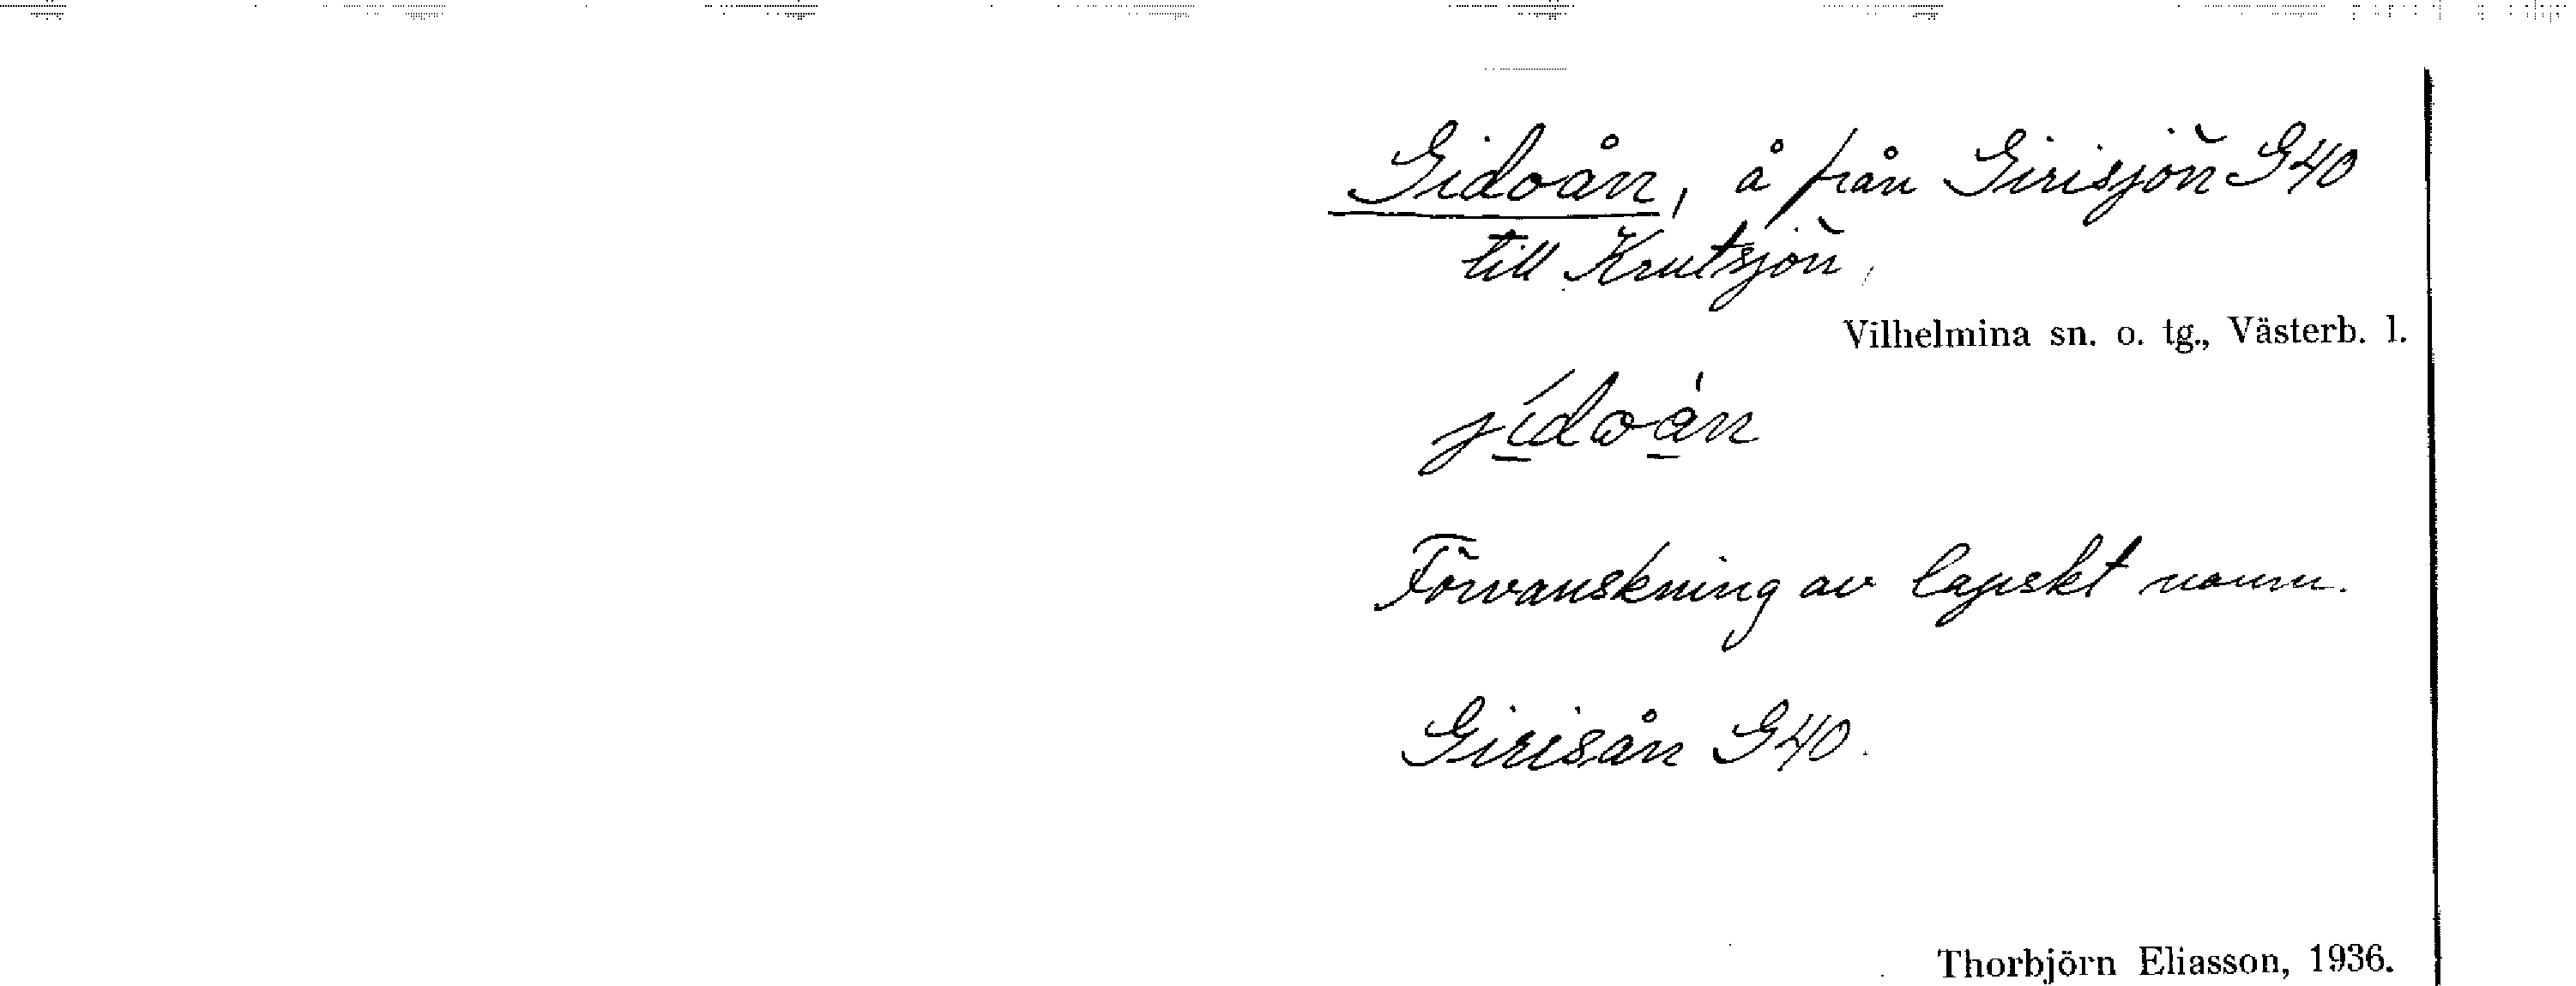 Gidoån, å från Girisjön G40
till Krutsjön,
Vilhelmina sn. o. tg., Västerb. l.
jídoàn
Förvanskning av lapskt namn.
Girisån G40.
Thorbjörn Eliasson, 1936.